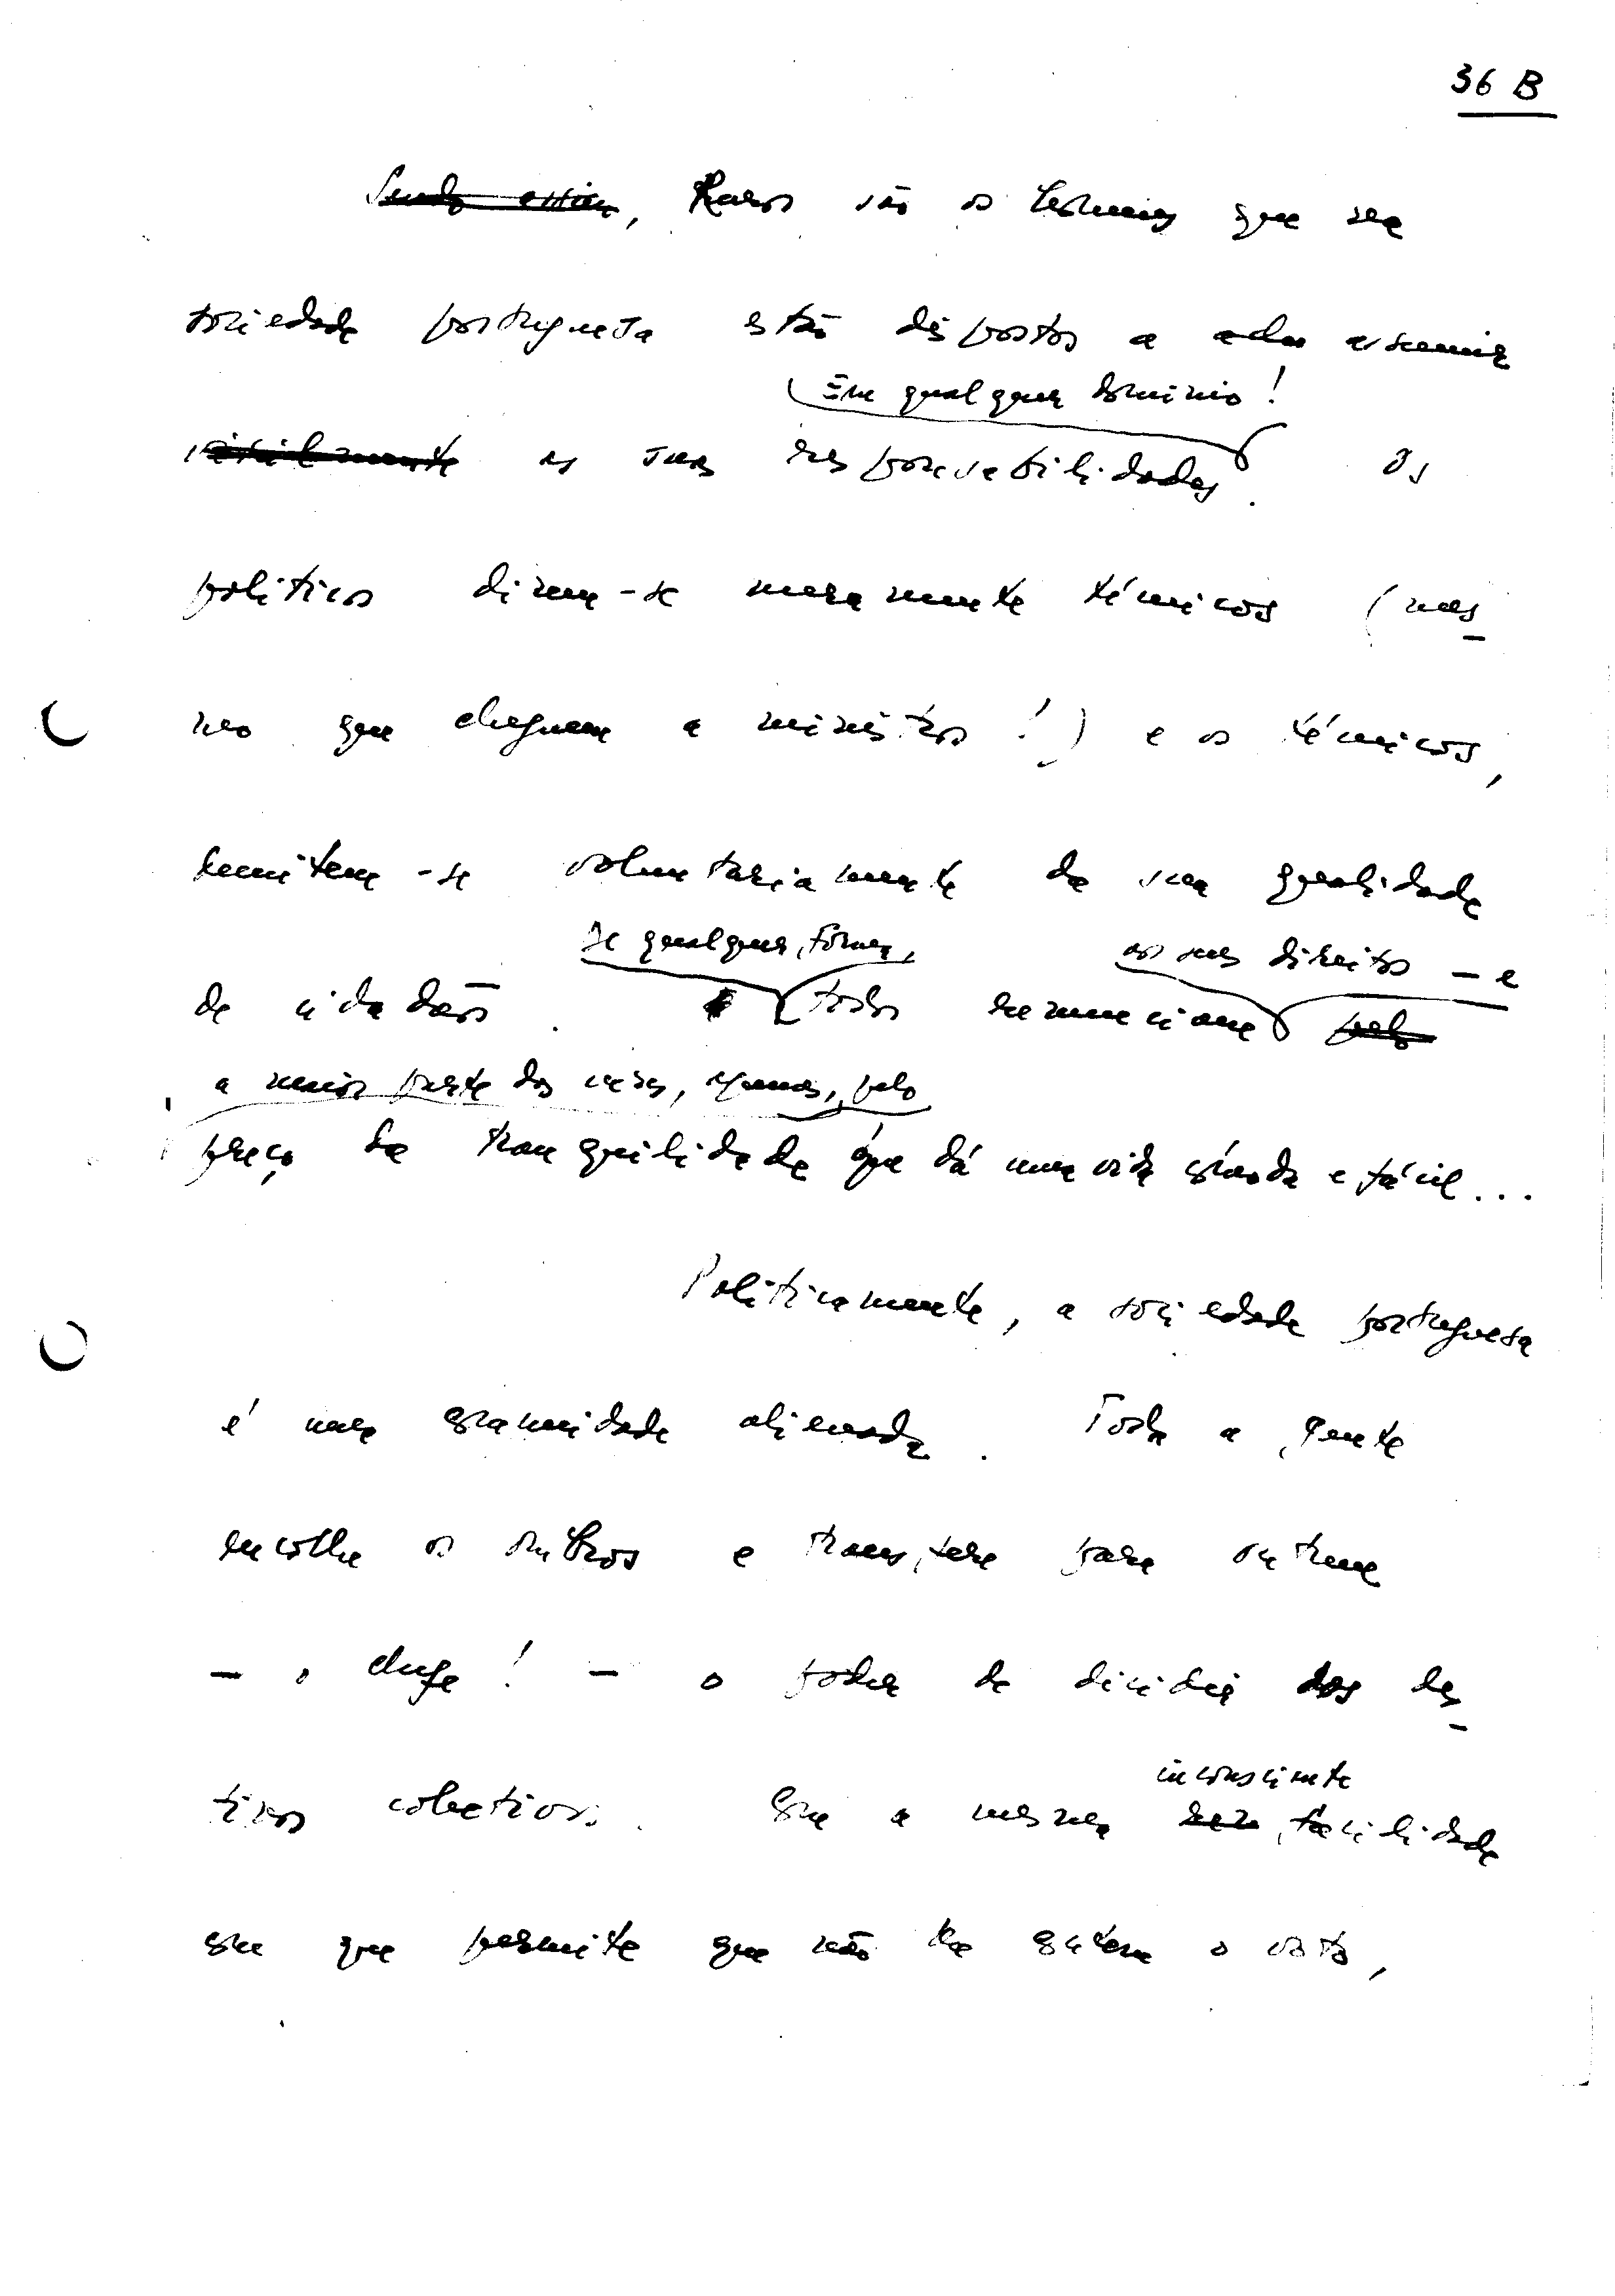 36 B
Sendo assim, Raros são os homens que na
sociedade portuguesa estão dispostos a assumir
Em qualquer domínio!
as suas responsabilidades. Os
políticos dizem-se meramente técnicos (mes-
mo que cheguem a ministros!) e os técnicos,
demitem-se voluntariamente da sua qualidade
De qualquer forma, os seus direitos – e
de cidadãos. todos renunciam pelo
a maior parte das vezes, apenas, pelo
preço da tranquilidade que dá uma vida cómoda e fácil...
Politicamente, a sociedade portuguesa
é uma comunidade alienada. Toda a gente
encolhe os ombros e transfere para outrem
– o chefe! – o poder de decidir dos des-
inconsciente
tinos colectivos. Com a mesma facilidade
com que permite que não lhe contem o voto,